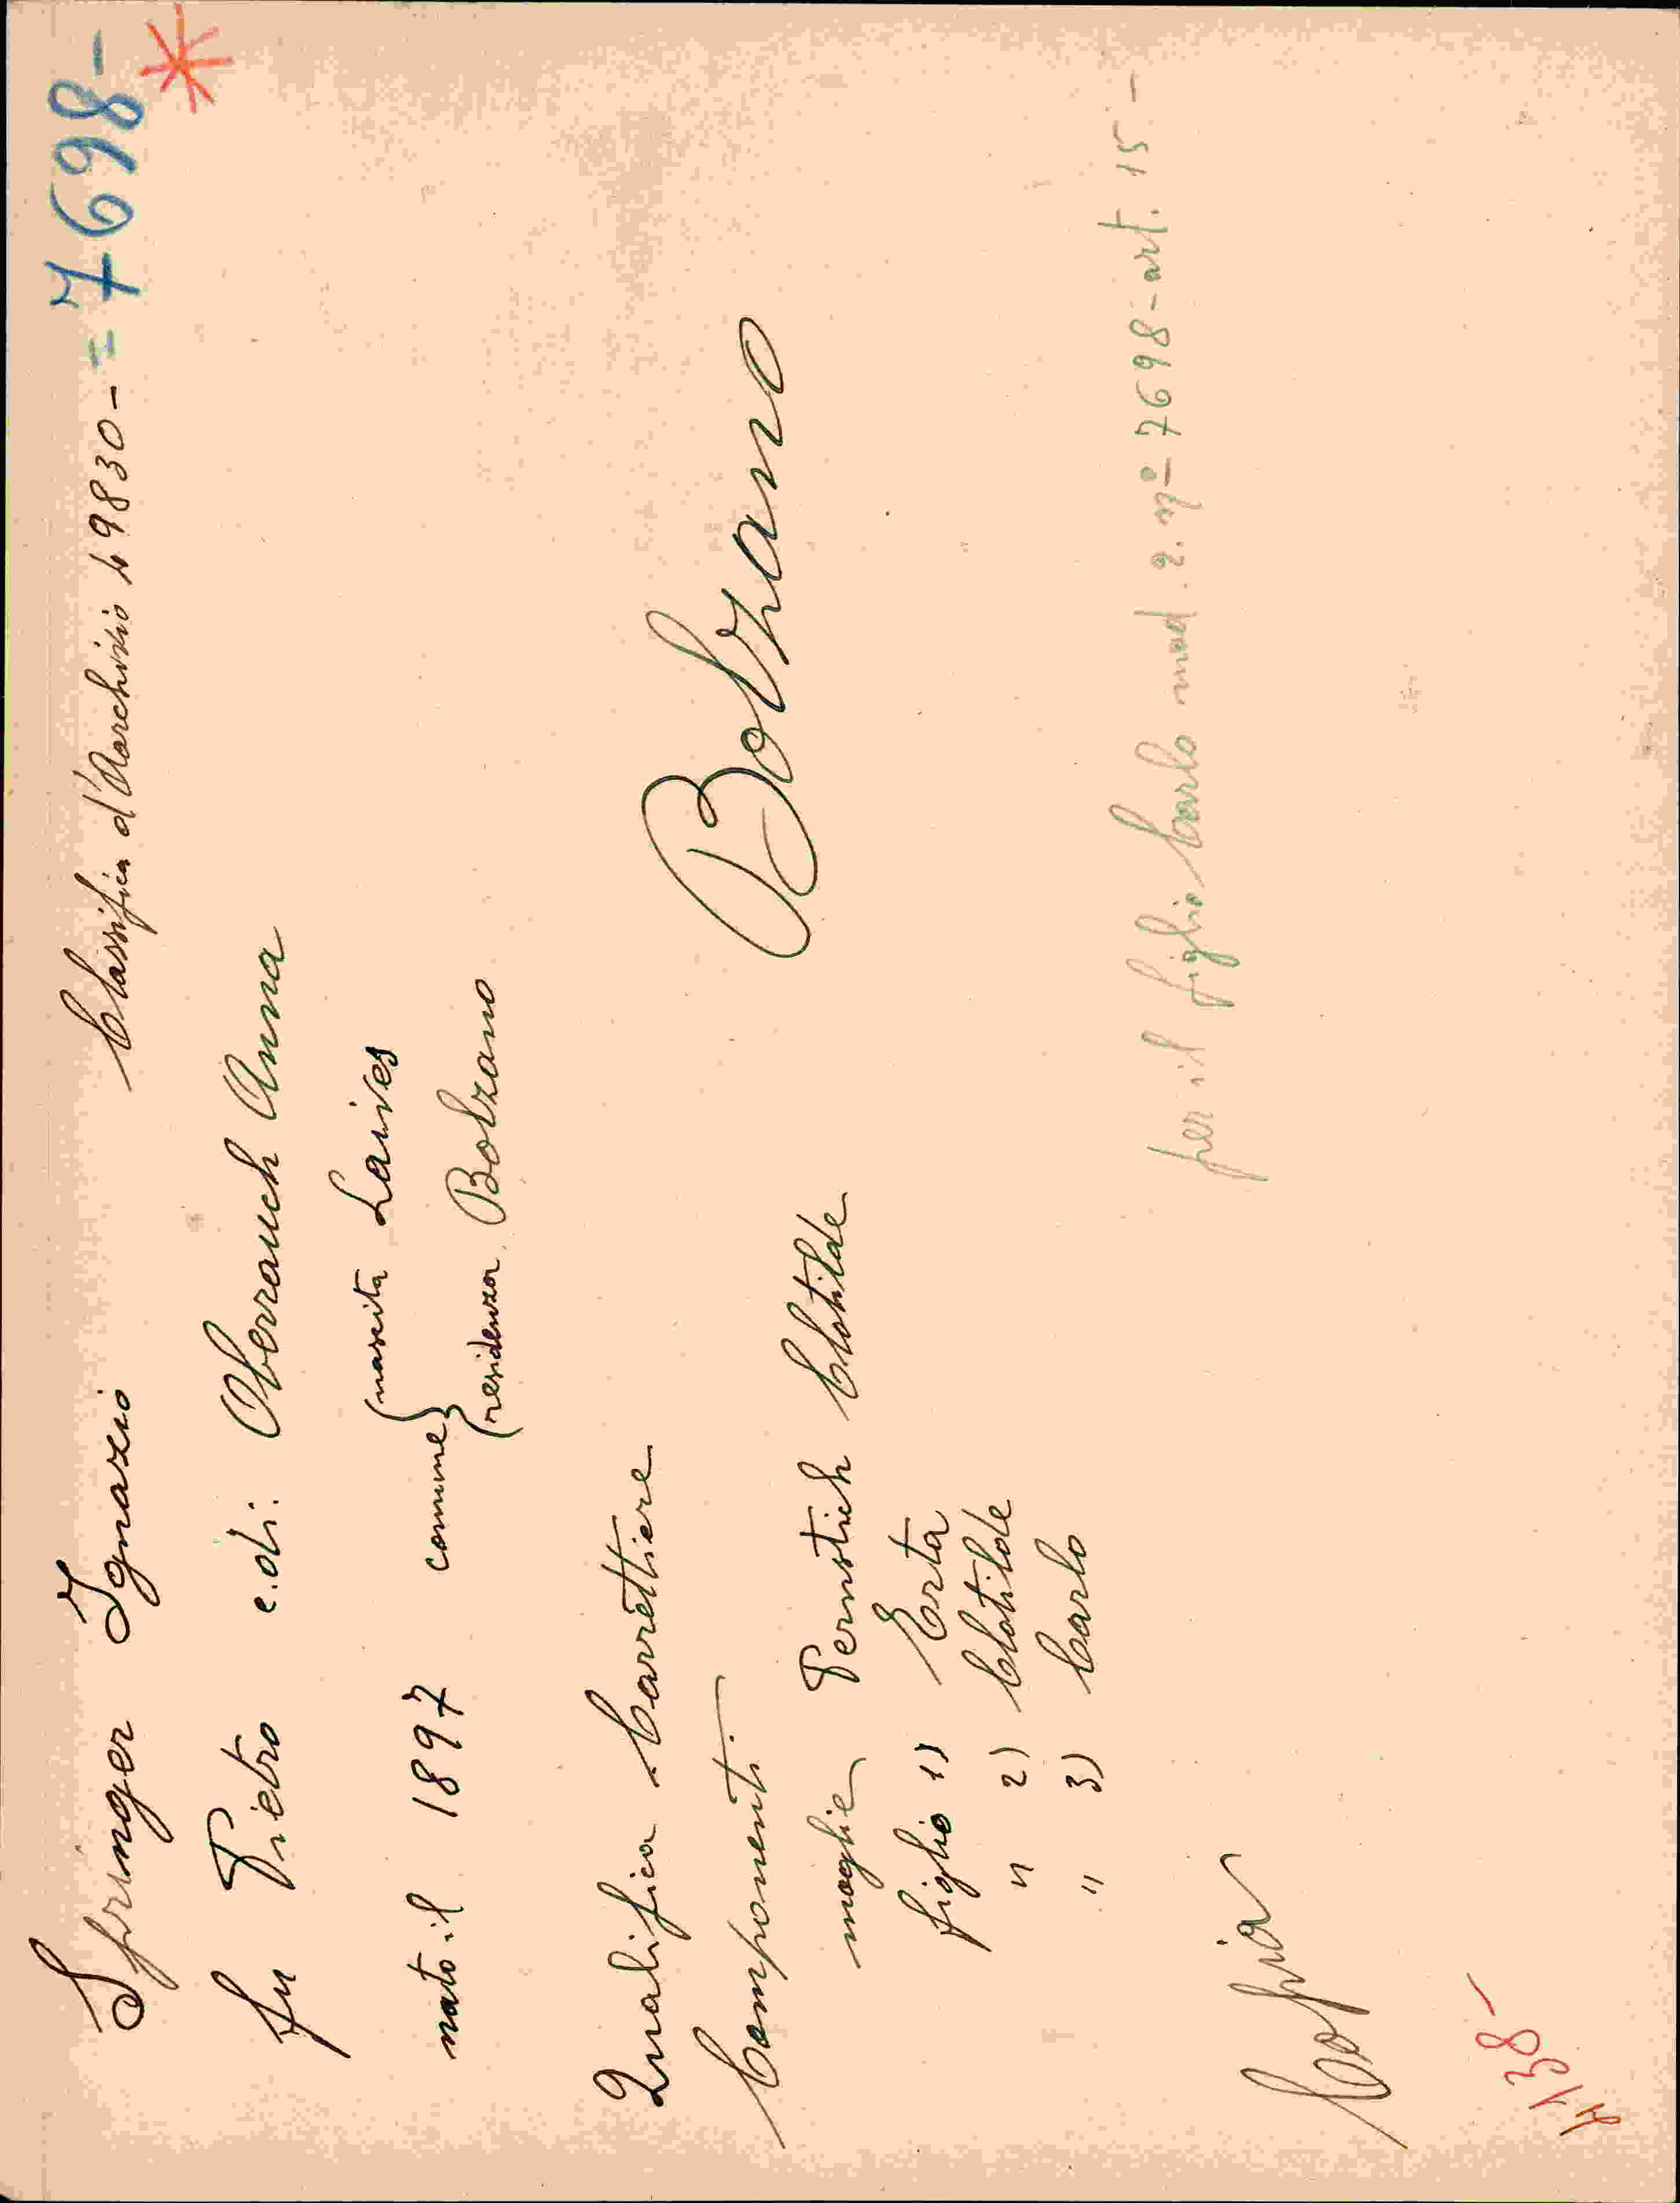 Springer Ignazio Classifica d'Archivio 49830 - = 7698 -
fu Pietro e di: Oberrauch Anna
nato il 1897 comune { nascita Laives
{ residenza Bolzano
Qualifica Carrettiere
Componenti.
Bolzano
moglie Pernstich Clotilde
figlio 1) Erta
" 2) Clotilde
" 3) Carlo
per il figlio Carlo mod. 2. nº 7698 - art. 15 -
Copia
4138 -